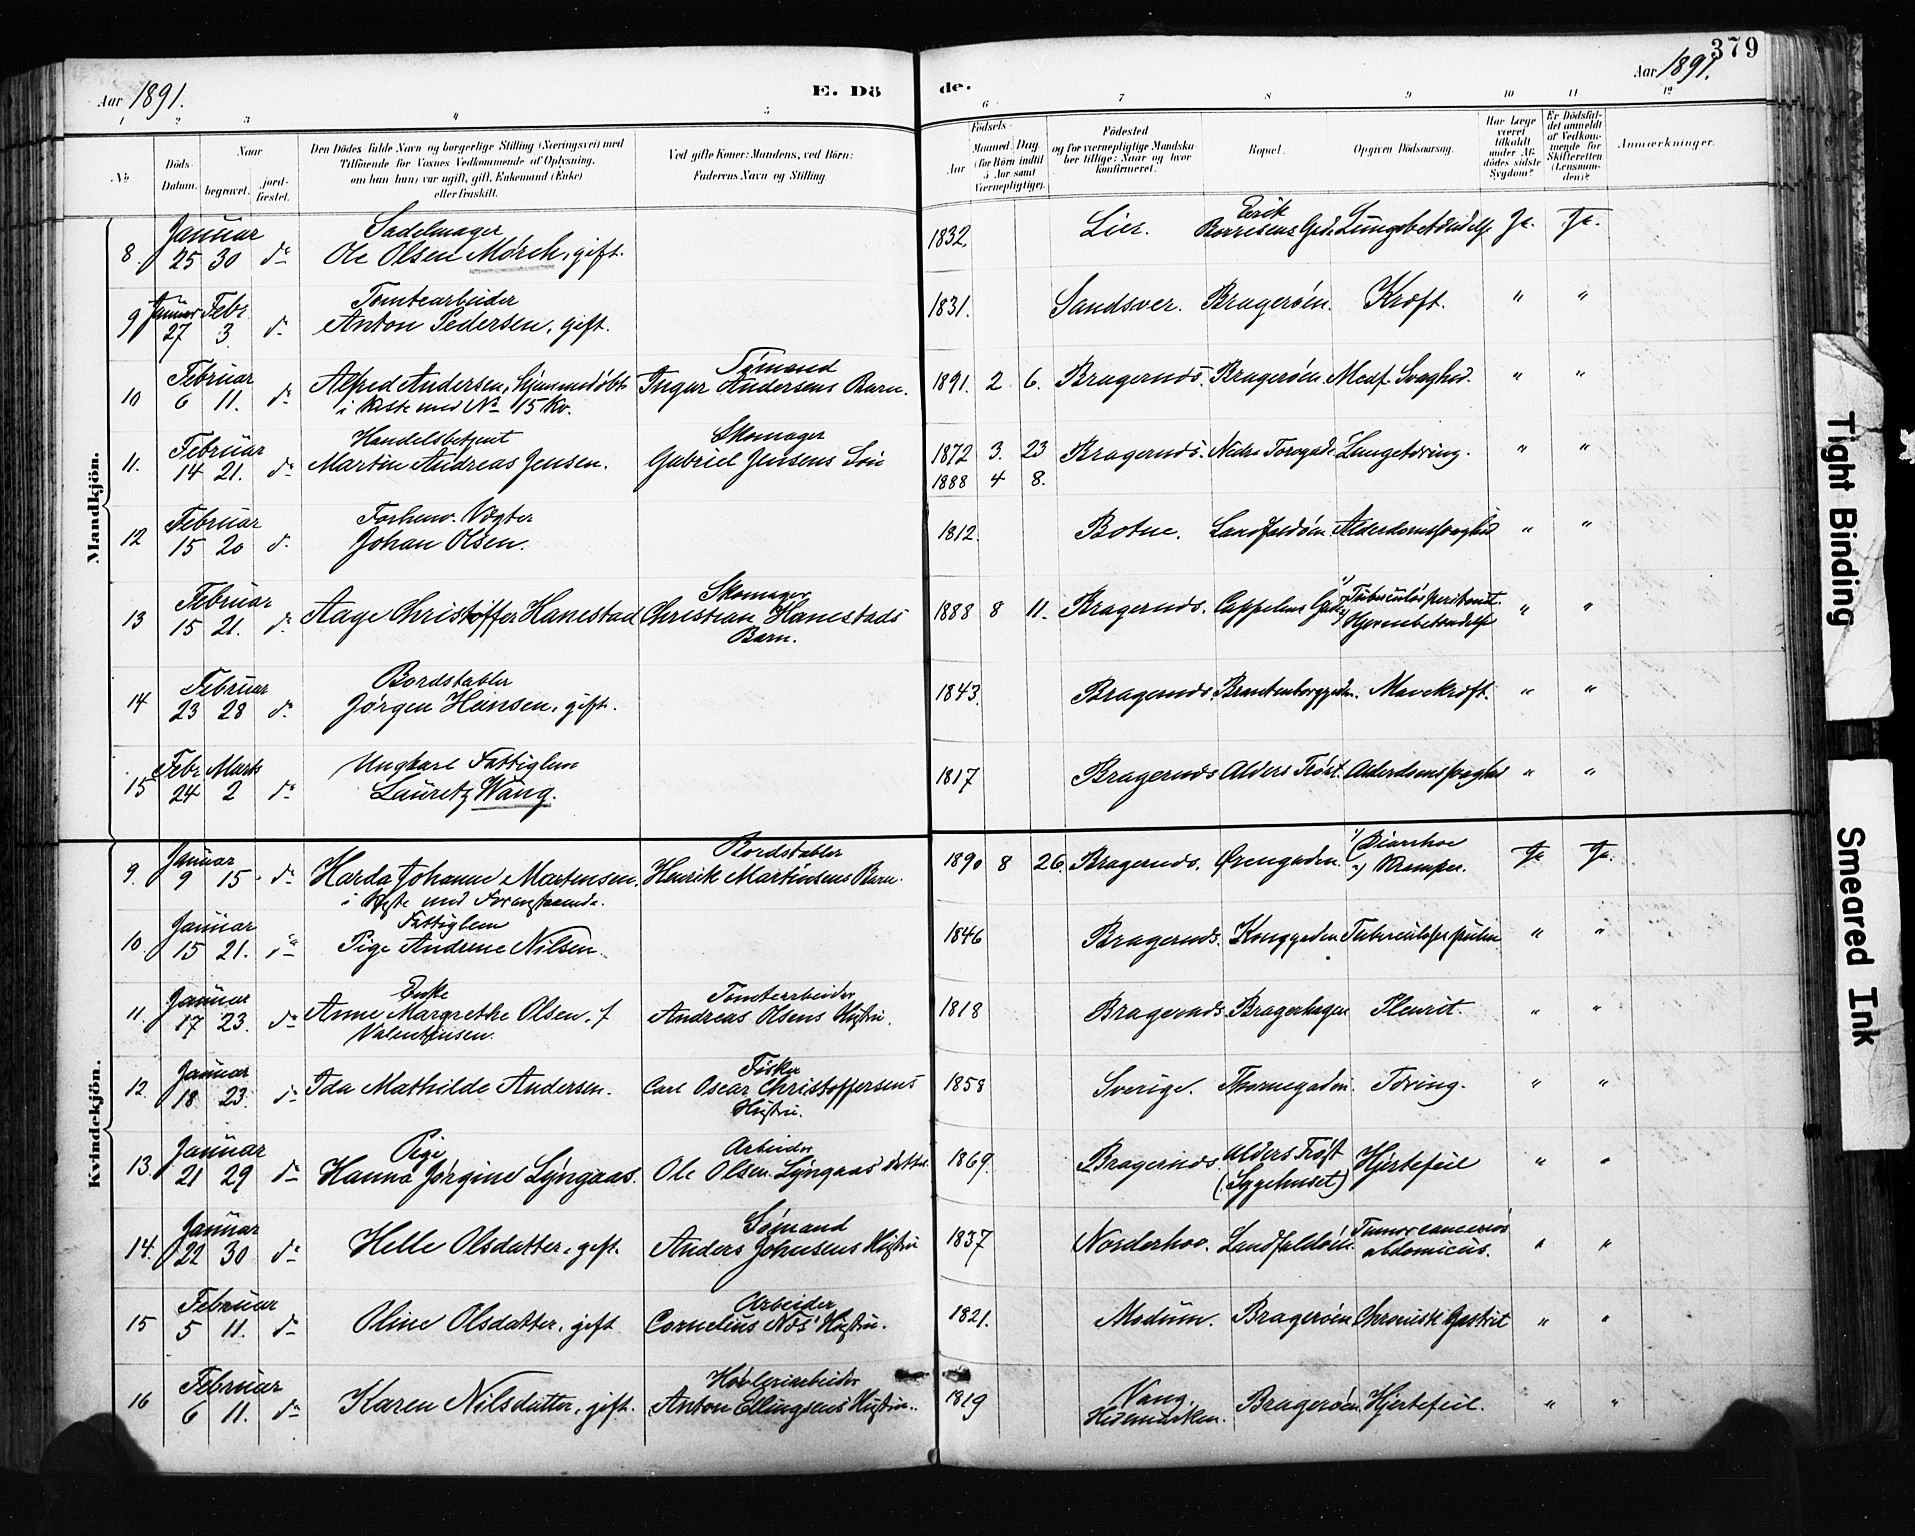 379
Aar 1891.
E. Dö
de.
Aar 1891.
1 2 3 4 5 6 7 8 9 10 11 12
No.
Döds-Datum.
Naar
begravet.
jord-fæstet.
Den Dödes fulde Navn og borgerlige Stilling (Næringsvei) med
Tilföiende for Voxnes Vedkommende af Oplysning,
om han (hun) var ugift, gift, Enkemand (Enke)
eller fraskilt.
Ved gifte Koner: Mandens, ved Börn:
Faderens Navn og Stilling
Födsels-
Aar
Maaned. Dag
(for Börn indtil
5 Aar samt
Værnepligtige).
Födested
og for værnepligtige Mandska-
ber tillige: Naar og hvor
konfirmeret.
Bopæl.
Opgiven Dödsaarsag.
Har Læge
været
tilkaldt
under Af-
dödes sidste
Sygdom?
Er Dödsfal-
det anmeldt
af Vedkom-
mende for
Skifteretten
(Lensman-
den)?
Anmærkninger.
Mandkjön.
Januar Sadelmager Erik
8. 25 30 do Ole Olsen Mörch, gift. 1832. Lier. Borresens Gd. Lungebetændelse Ja. Ja.
Januar Febr Tomtearbeider
9 27 3. do Anton Pedersen, gift. 1831. Sandsver. Bragerøen. Kræft. " "
Februar Sømand
10 6 11. do Alfred Andersen, hjemmedøbt Ingar Andersens Barn. 1891. 2 6. Bragernæs. Bragerøen. Medf. Svaghed. " "
i Kiste med No 15 Kv.
Februar Handelsbetjent Skomager
11. 14 21. do Martin Andreas Jensen. Gabriel Jensens Søn 1872 3. 23 Bragernæs. Nedre Torvgade. Lungetæring. " "
1888 4 8.
Februar Forhenv. Vægter
12 15 20 do Johan Olsen. 1812. Botne. Landfaldøen. Alderdomssvaghed " "
Februar Skomager
13 15 21. do Aage Christoffer Hanestad Christian Hanestads 1888 8 11. Bragernæs. Cappelens Gade Tuberculøs peritonit. " "
Barn. Hjernebetændelse
Februar Bordstabler
14 23 28 do Jørgen Hansen, gift. 1843. Bragernæs Mavekræft. " "
Febr. Marts Ungkarl Fattiglem
15 24 2 do Lauretz Wang. 1817 Bragernæs Alders Trøst. Alderdomssvaghed " "
Kvindekjön.
Januar Bordstabler 1) Diarrhoe
9. 9 15. do Harda Johanne Martensen. Henrik Martinsens Barn. 1890 8 26. Bragernæs. Ørengaden. 2) Kramper. Ja Ja.
i Kiste med Foranstaaende.
Januar Fattiglem
10. 15 21. do Pige Andrine Nilsen. 1846 Bragernæs. Konggaden Tuberculose pulm " "
Januar Enke Tomtearbeider
11. 17 23. do Anne Margrethe Olsen, f Andreas Olsens Hustru. 1818 Bragernæs Bragerhagen Pleurit. " "
Valentinsen.
Januar Fisker
12. 18 23. do Ida Mathilde Andersen. Carl Oscar Christoffersens 1858 Sverige. Thornegaden. Tæring. " "
Hustru.
Januar Pige Arbeider Alders Trøst
13. 21 29 do Hanna Jørgine Lyngaas. Ole Olsen Lyngaas' datter 1869. Bragernæs. (Sygehuset) Hjertefeil " "
Januar Sømand Tumor cancerøs
14. 22 30 do Helle Olsdatter, gift. Anders Johnsens Hustru 1837 Norderhov. Landfaldøen abdomicus. " "
Februar Arbeider
15 5 11. do Oline Olsdatter, gift Cornelius Næs' Hustru. 1821. Modum. Bragerøen Chronisk Gastrit " "
Februar Høvleriarbeider
16 6 11. do Karen Nilsdatter, gift. Anton Ellingsens Hustru. 1819 Vang Bragerøen Hjertefeil. " "
Hedemarken.
Tight Binding
Smeared Ink